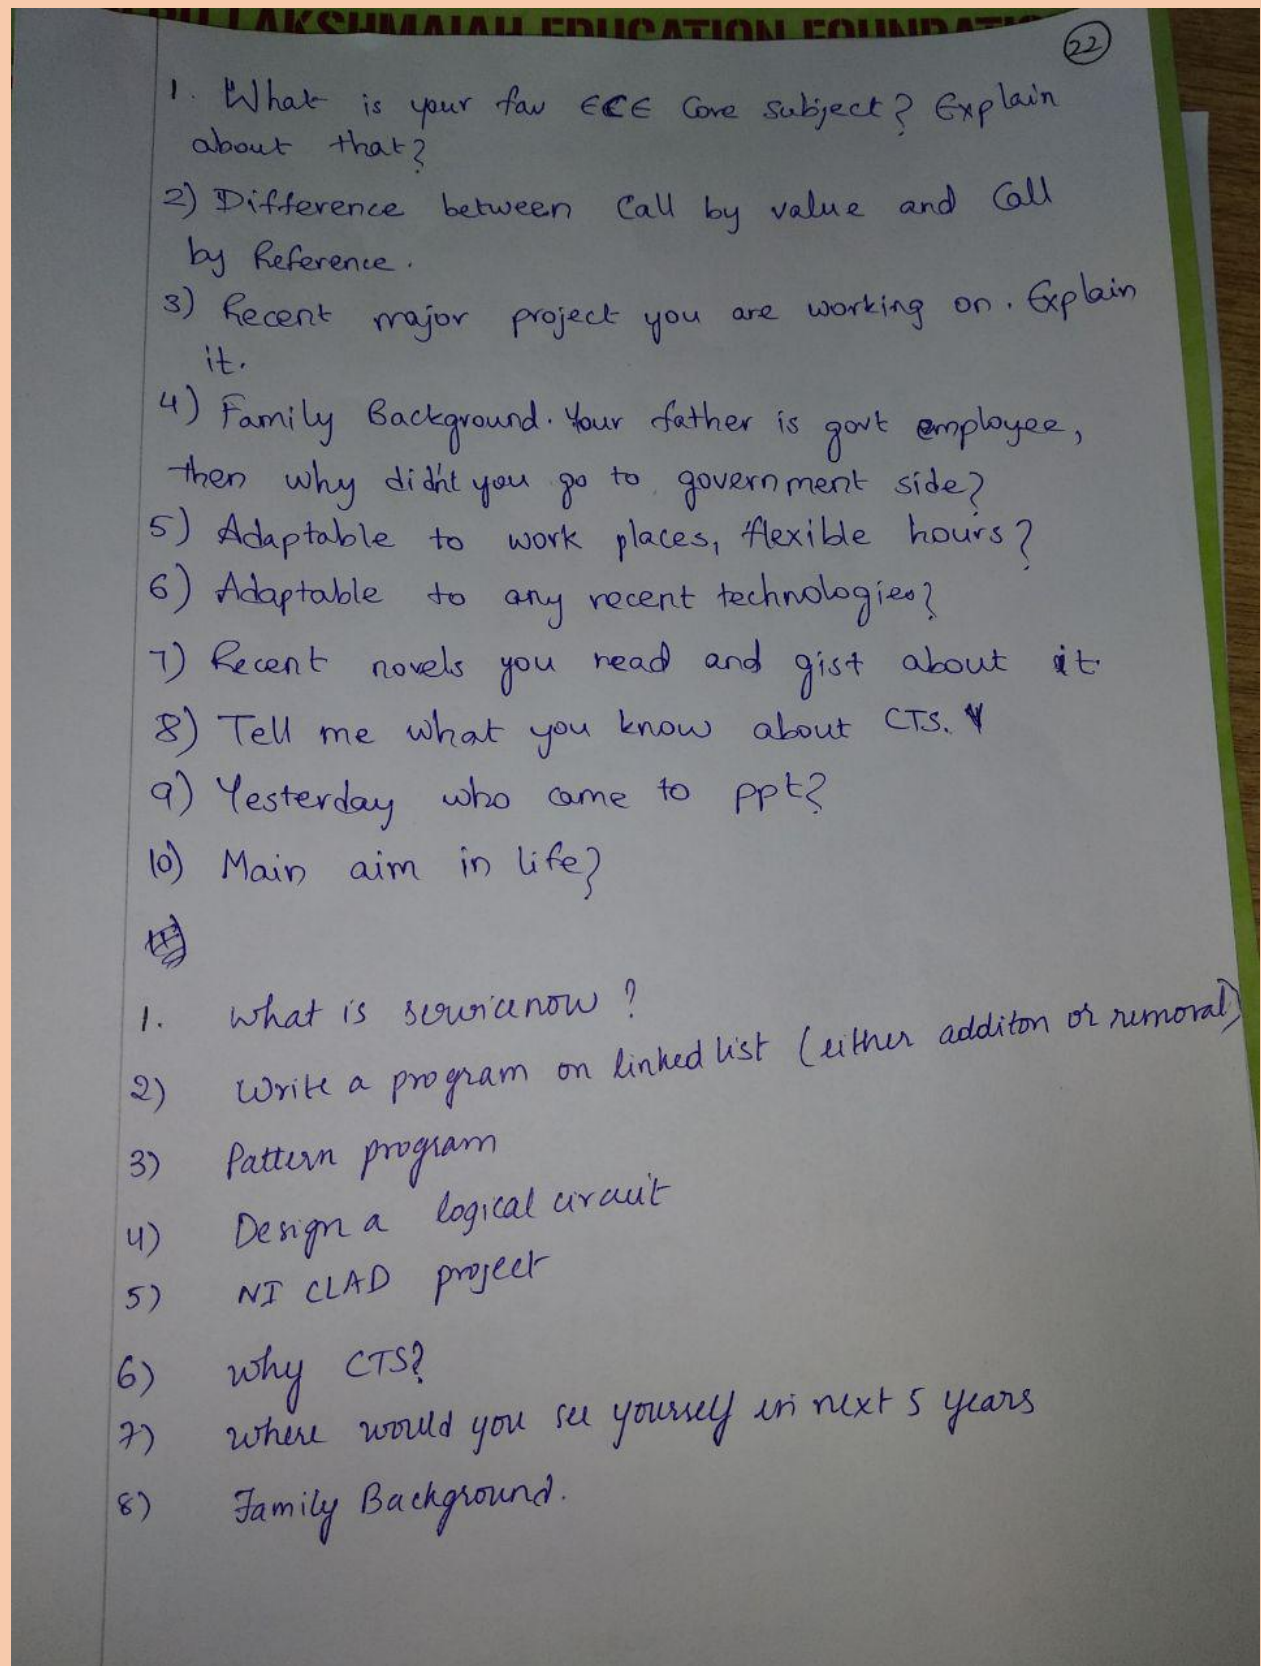 LAKSHMAIAH EDUCATION
22
1. What is your fav ECE Core subject? Explain
about that?
2) Difference between Call by value and Call
by Reference.
3) Recent major project you are working on. Explain
it.
4) Family Background. Your father is govt employee,
then why didn't you go to government side?
5) Adaptable to work places, flexible hours?
6) Adaptable to any recent technologies?
7) Recent novels you read and gist about it.
8) Tell me what you know about CTS.
9) Yesterday who came to ppt?
10) Main aim in life?
1. what is servicenow?
2) Write a program on linked list (either additon or removal)
3) Pattern program
4) Design a logical circuit
5) NI CLAD project
6) why CTS?
7) where would you see yourself in next 5 years
8) Family Background.